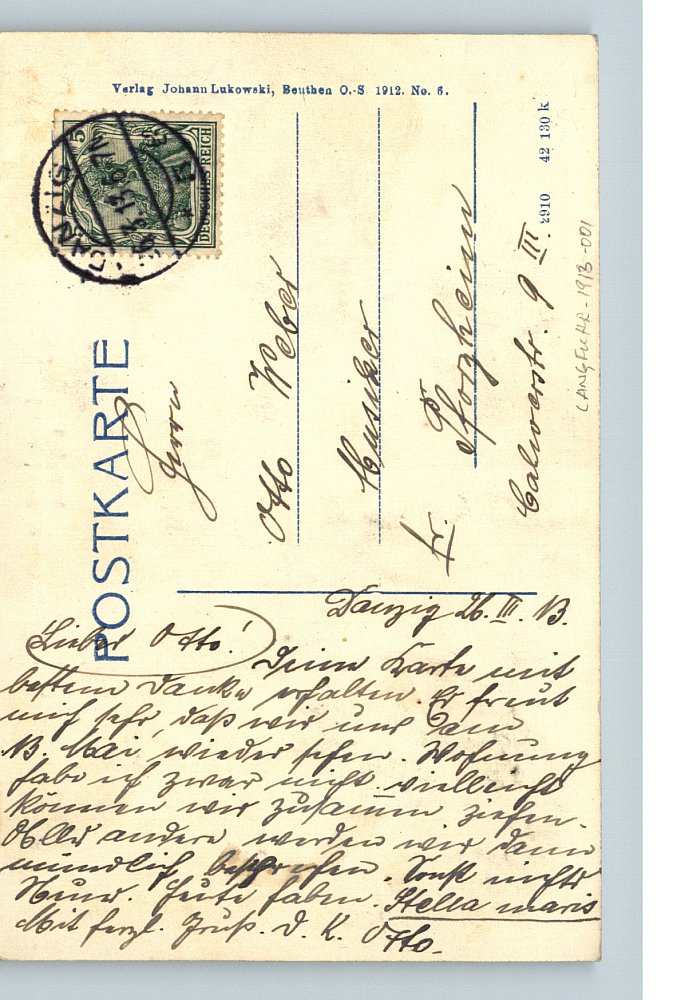 Verlag Johann Lukowski, Beuthen O.-S. 1912. No. 6.
2910 42 130 k
LANGFUHR-1913-001
DANZIG
26.3.13.
5
DEUTSCHES REICH
POSTKARTE
Herrn
Otto Weber
Musiker
fr. Pforzheim
Calwerstr. 9 III.
Danzig 26. III. 13.
Lieber Otto!
Deine Karte mit
bestem Danke erhalten. Er freut
mich sehr, daß wir uns am
13. Mai wieder sehen. Wohnung
habe ich zwar nicht vielleicht
können wir zusamm ziehen.
Alles andere werden wir dann
mündlich besprechen. Sonst nichts
Neues. Heute haben Stella maris
Mit herzl. Gruß. D. K. Otto.